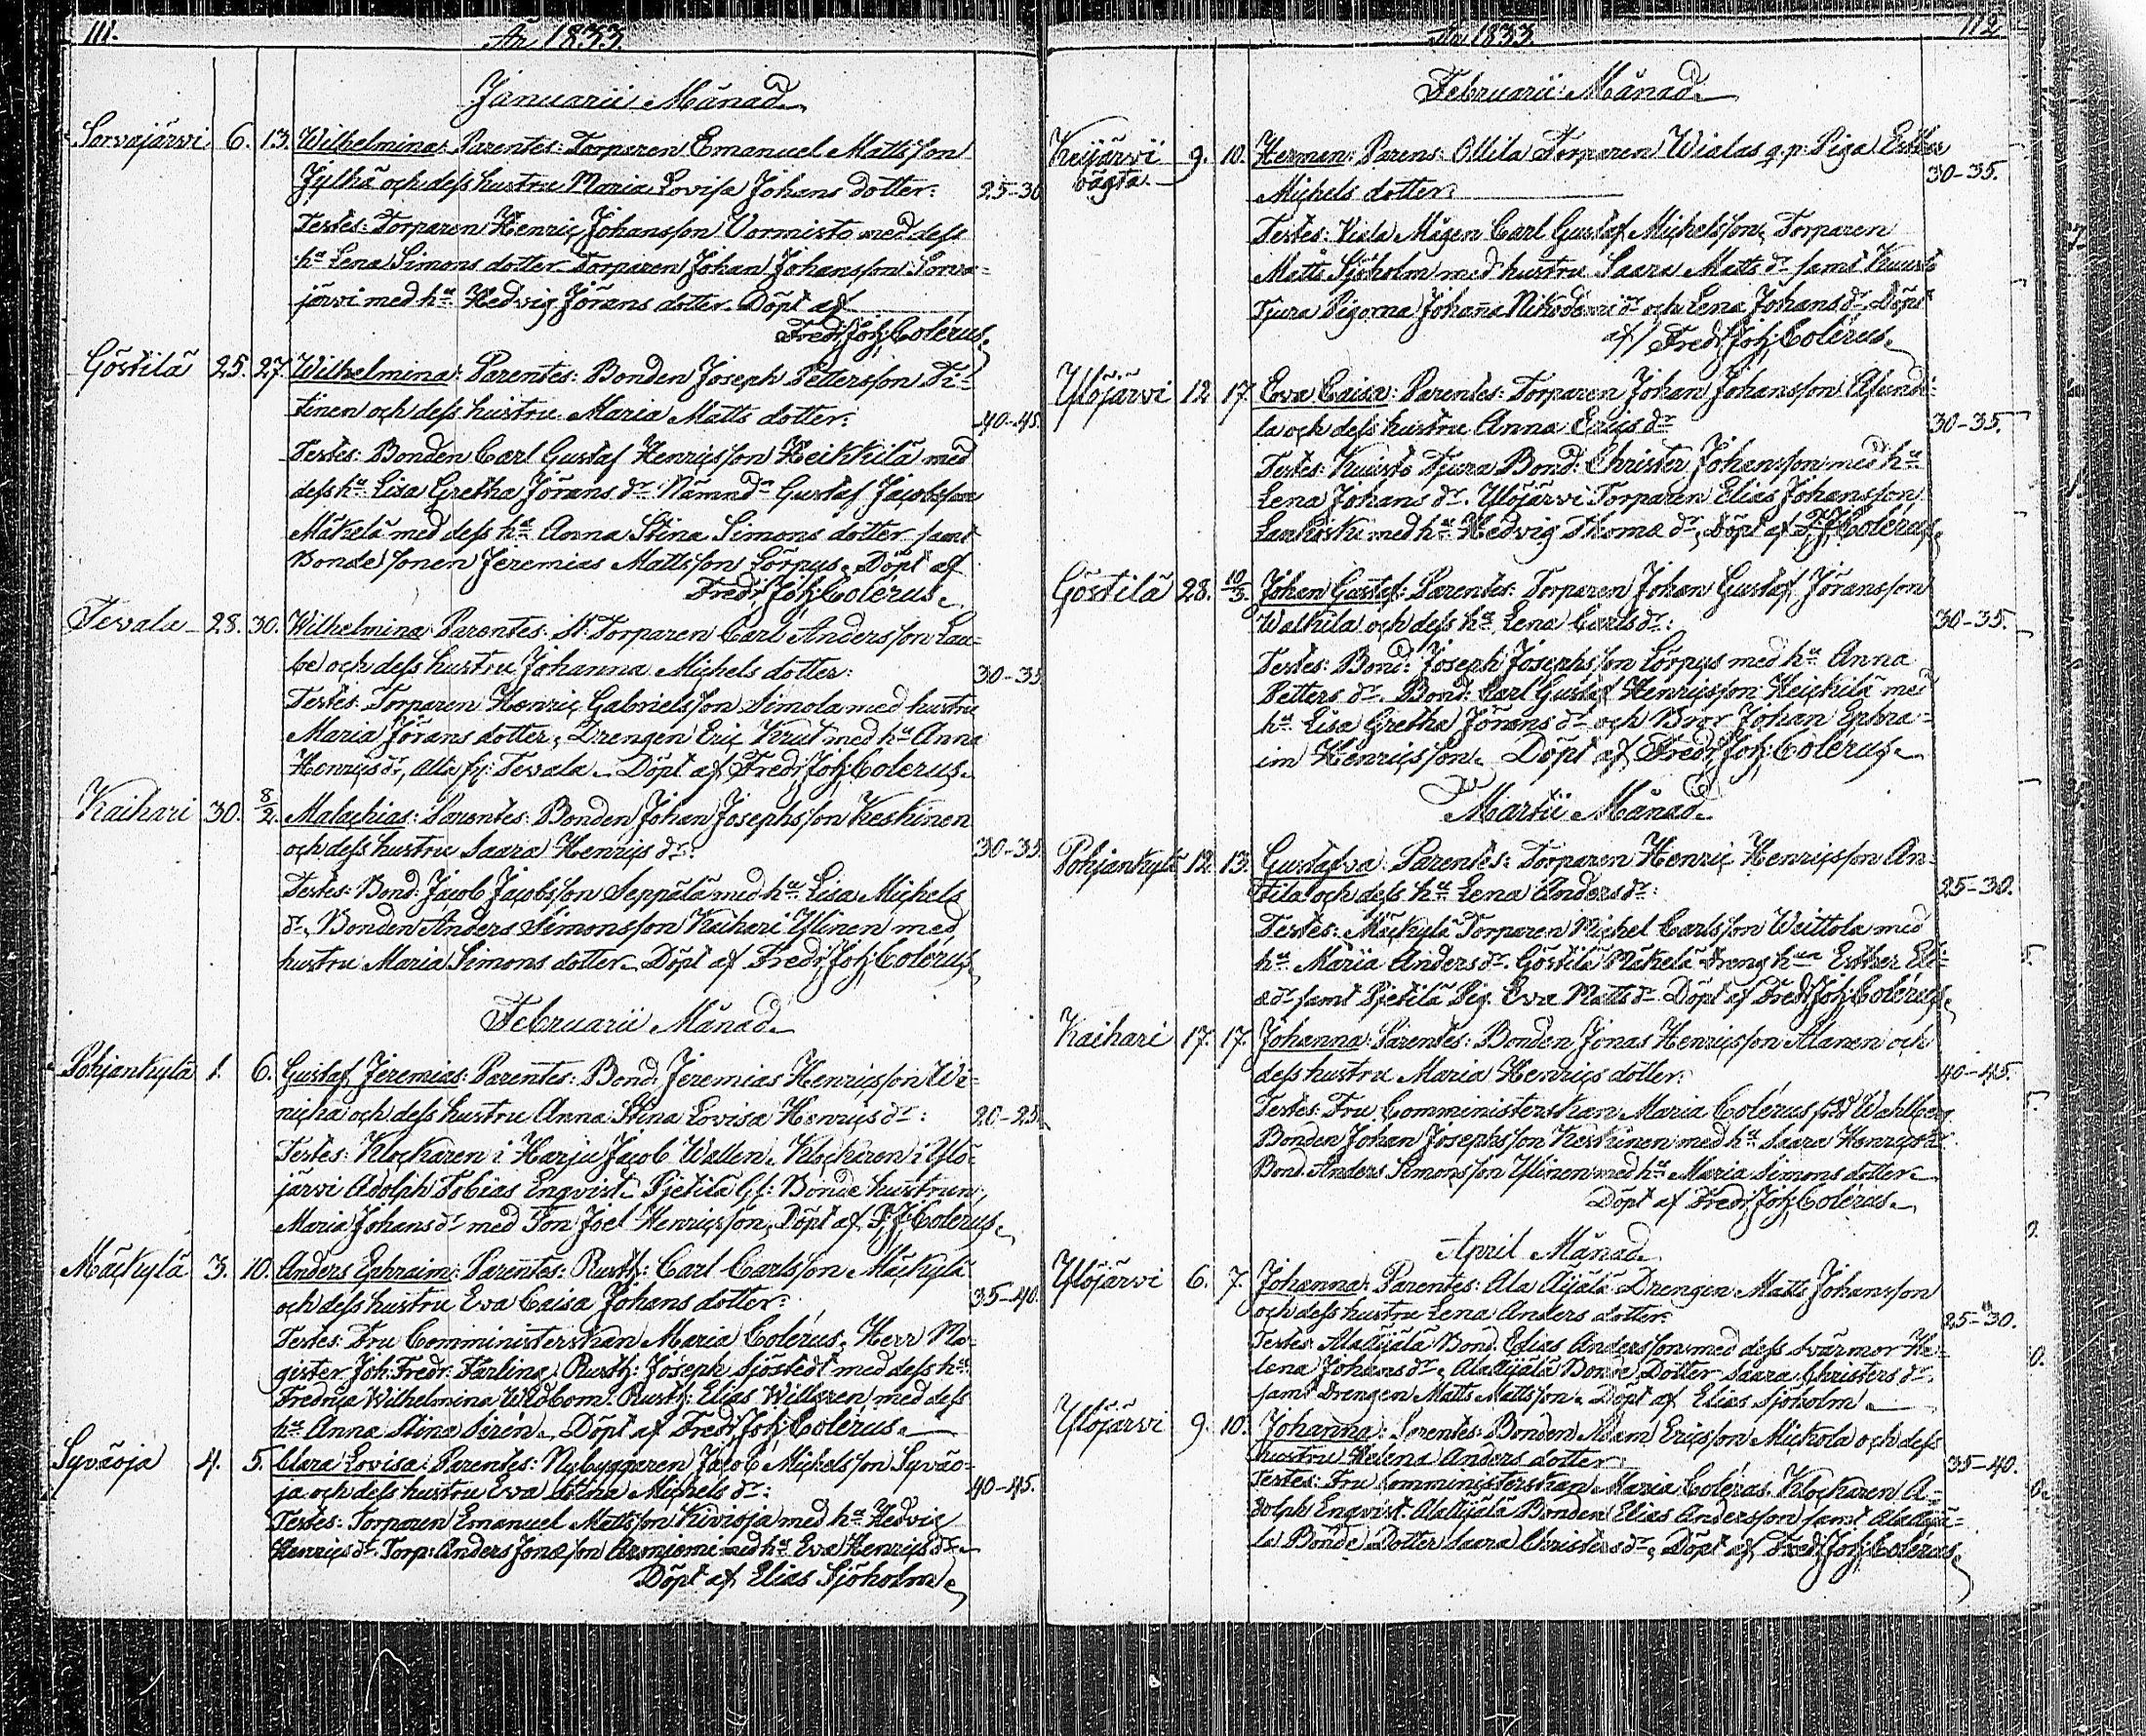 111.
År 1833.
Januarii Månad
Sorvajärvi 6. 13. Wilhelmina: Parentes: Torparen Emanuel Mattsson
Jylhä och dess hustru Maria Lovisa Johans dotter: 25-30
Testes: Torparen Henric Johansson Vormisto med dess
hu Lena Simons dotter Torparen Johan Johansson Sorva=
järvi med hu Hedvig Jörans dotter. Döpt af
Fredr: Joh: Colérus.
Göstilä 25. 27. Wilhelmina: Parentes: Bonden Joseph Pettersson Ti=
tinen och dess hustru Maria Matts dotter: 40-45.
Testes: Bonden Carl Gustaf Henricsson Heikkilä med
dess hu Lisa Gretha Jörans dr Nämnd n Gustaf Jacobsson
Mäkelä med dess hu Anna Stina Simons dotter samt
Bonde sonen Jeremias Mattsson Lörpys. Döpt af
Fredr: Joh: Colérus.
Tevala 28. 30. Wilhelmina: Parentes: St: Torparen Carl Andersson Laa=
be och dess hustru Johanna Michels dotter: 30-35
Testes: Torparen Henric Gabrielsson Simola med hustru
Maria Jörans dotter, Drengen Eric Krut med hu Anna
Henrics dr, alla fr: Tevala. Döpt af Fredr: Joh: Colerus.
Kaihari 30. 8/2. Malachias: Parentes: Bonden Johan Josephsson Keskinen
och dess hustru Saara Henrics dr: 30-35
Testes: Bond: Jacob Jacobsson Seppälä med hu Lisa Michels
dr, Bonden Anders Simonsson Kaihari Ylinen med
hustru Maria Simons dotter. Döpt af Fredr: Joh: Colérus.
Februarii Månad
Pohjankylä 1. 6. Gustaf Jeremias: Parentes: Bond: Jeremias Henricsson Wi=
nicha och dess hustru Anna Stina Lovisa Henrics dr: 20-25.
Testes: Klockaren i Harju Jacob Wallen. Klockaren i Ylö=
järvi Adolph Tobias Enqvist. Pjetilä Gl: Bonde hustrun,
Maria Johans dr med Son Joel Henricsson, Döpt af F: J: Colerus.
Mäckylä 3. 10. Anders Ephraim: Parentes: Rusth: Carl Carlsson Mäckylä
och dess hustru Eva Caisa Johans dotter: 35-40.
Testes: Fru Comministerskan Maria Colérus, Herr Ma=
gister Joh: Fredr: Färling, Rusth: Joseph Sjöstedt med dess hu
Fredrica Wilhelmina Widbom. Rusth: Elias Willgren med dess
hu Anna Stina Sirén. Döpt af Fredr: Joh: Colérus.
Syväoja 4. 5. Clara Lovisa: Parentes: Nybyggaren Jacob Michelsson Syväo=
ja och dess hustru Eva Stina Michels dr: 40-45.
Testes: Torparen Emanuel Mattsson Kivioja med hu Hedvig
Henrics dr. Torp: Anders Jonasson med hu Eva Henrics dr
Döpt af Elias Sjöholm.
112
År 1833.
Februarii: Månad
Keijärvi 9. 10. Herman: Parens: Ollila Torparen Wialas q.p. Piga Esther
bägta Michels dotter 30-35.
Testes: Viala Mågen Carl Gustaf Michelsson, Torparen
Matts Sjöholm med hustru Saara Matts dr samt Kuusto
Tjura Pigorna Johanna Nikodemi dr och Lena Johans dr Döpt
af Fredr: Joh: Colérus.
Ylöjärvi 12. 17. Eva Caisa: Parentes: Torparen Johan Johansson Asundi=
la och dess hustru Anna Erics dr 30-35.
Testes: Kuisto Tjura Bond: Christer Johansson med hu
Lena Johans dr. Ylöjärvi Torparen Elias Johansson
Lankoski med hu Hedvig Thoma dr, Döpt af F: J: Colérus.
Göstilä 28. 10/3. Johan Gustaf: Parentes: Torparen Johan Gustaf Jöransson
Walkila och dess hu Lena Carls dr: 30-35.
Testes: Bond: Joseph Josephsson Lörpys med hu Anna
Petters dr. Bond: Carl Gustaf Henricsson Heickilä med
hu Lisa Gretha Jörans dr och Bror Johan Ephra=
im Henricsson. Döpt af Fredr: Joh: Colérus.
Martii Månad
Pohjankylä 12. 13. Gustafva: Parentes: Torparen Henric Henricsson An=
tila och dess hu Lena Anders dr: 25-30.
Testes: Mäckylä Torparen Michel Carlsson Weittola med
hu Maria Anders dr. Göstilä Mäkelä dreng hun Esther Eli=
ae dr samt Pjetilä Pig. Eva Matts dr Döpt af Fredr: Joh: Colérus.
Kaihari 17. 17. Johanna: Parentes: Bonden Jonas Henricsson Alanen och
dess hustru Maria Henrics dotter: 40-45.
Testes: Fru Comministerskan Maria Colérus född Wahlberg
Bonden Johan Josephsson Keskinen med hu Saara Henrics dr
Bond. Anders Simonsson Ylinen med hu Maria Simons dotter
Döpt af Fredr: Joh: Colérus.
April Månad
Ylöjärvi 6. 7. Johanna: Parentes: Ala Äijälä Drengen Matts Johansson
och dess hustru Lena Anders dotter: 25-30.
Testes: Ala Äijälä Bond. Elias Andersson med dess Svärmor He=
lena Johans dr, Ala Äijälä Bonde Dotter Saara Christers dr
samt Drengen Matts Mattsson. Döpt af Elias Sjöholm.
Ylöjärvi 9. 10. Johanna: Parentes: Bonden Adam Ericsson Mickola och dess
hustru Helena Anders dotter: 35-40.
Testes: Fru Comministerskan Maria Coléras. Klockaren A=
dolph Enqvist. Ala Äijälä Bonden Elias Andersson samt Ala Äijä=
lä Bonde Dotter Saara Christers dr, Döpt af Fredr: Joh: Colérus.